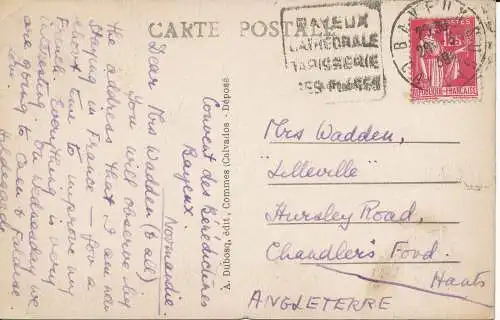 CARTE POSTALE
BAYEUX
CATHÉDRALE
TAPISSERIE
SES MUSÉES
BAYEUX
POSTES
RÉPUBLIQUE FRANÇAISE
Convent des Bénédictines
Bayeux.
Normandie.
Dear Mrs Wadden (& all)
You will observe by
the address that I am now
staying in France – for a
short time to improve my
French. Everything is very
interesting. On Wednesday we
are going to Caen & Falaise.
Hildegarde
A. Dubosq, édit., Commes (Calvados - Déposé
Mrs Wadden,
"Lilleville"
Hursley Road,
Chandler's Ford.
Hants
ANGLETERRE